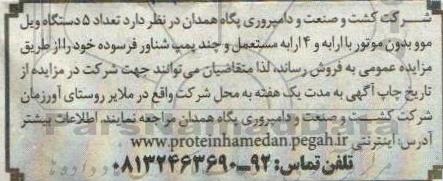 شرکت کشت و صنعت و دامپروری پگاه همدان در نظر دارد تعداد ۵ دستگاه ویل
موو بدون موتور با ارابه و ۴ ارابه مستعمل و چند پمپ شناور فرسوده خود را از طریق
مزایده عمومی به فروش رساند، لذا متقاضیان می‌توانند جهت شرکت در مزایده از
تاریخ چاپ آگهی به مدت یک هفته به محل شرکت واقع در ملایر روستای آورزمان
شرکت کشت و صنعت و دامپروری پگاه همدان مراجعه نمایند. اطلاعات بیشتر
آدرس: اینترنتی www.proteinhamedan.pegah.ir
تلفن تماس: ۹۲-۰۸۱۳۲۴۶۳۶۹۰